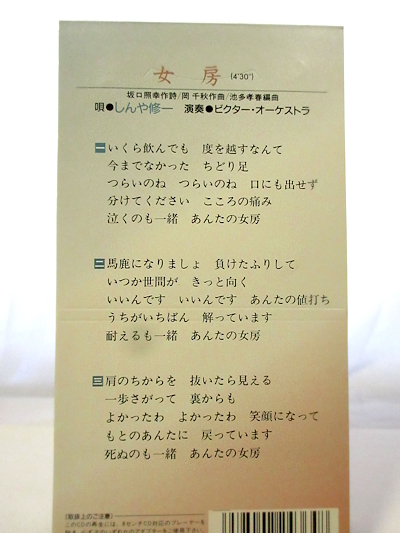 女房 (4'30")
坂口照幸作詩/岡 千秋作曲/池多孝春編曲
唄●しんや修一 演奏●ビクター・オーケストラ
一 いくら飲んでも 度を越すなんて
今までなかった ちどり足
つらいのね つらいのね 口にも出せず
分けてください こころの痛み
泣くのも一緒 あんたの女房
二 馬鹿になりましょ 負けたふりして
いつか世間が きっと向く
いいんです いいんです あんたの値打ち
うちがいちばん 解っています
耐えるも一緒 あんたの女房
三 肩のちからを 抜いたら見える
一歩さがって 裏からも
よかったわ よかったわ 笑顔になって
もとのあんたに 戻っています
死ぬのも一緒 あんたの女房
(取扱上のご注意)
このCDの再生には、8センチCD対応のプレーヤーを